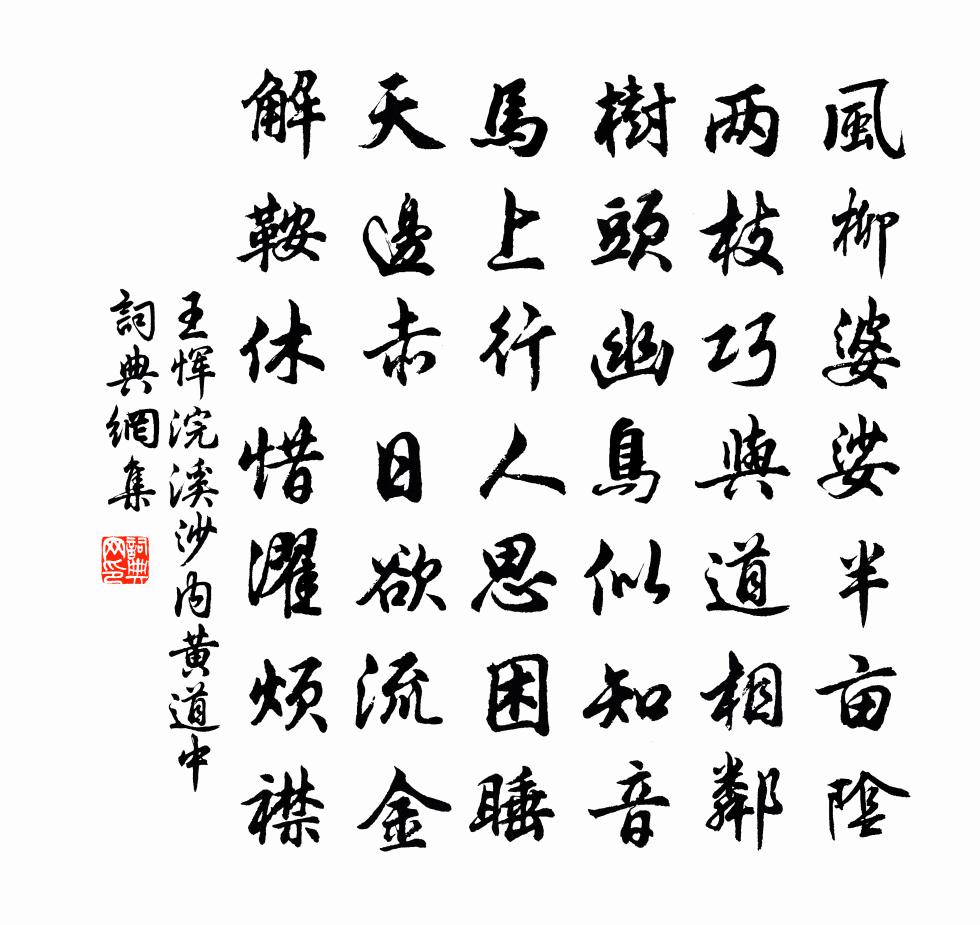 風柳婆娑半亩陰
两枝巧與道相鄰
樹頭幽鳥似知音
馬上行人思困睡
天邊赤日欲流金
解鞍休惜濯煩襟
王惲浣溪沙内黄道中
詞典網集
詞典網印